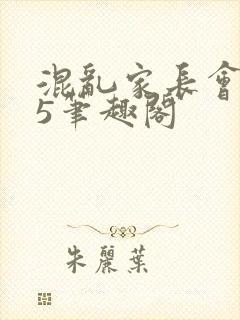 混亂家長會
5筆趣閣
朱麗葉